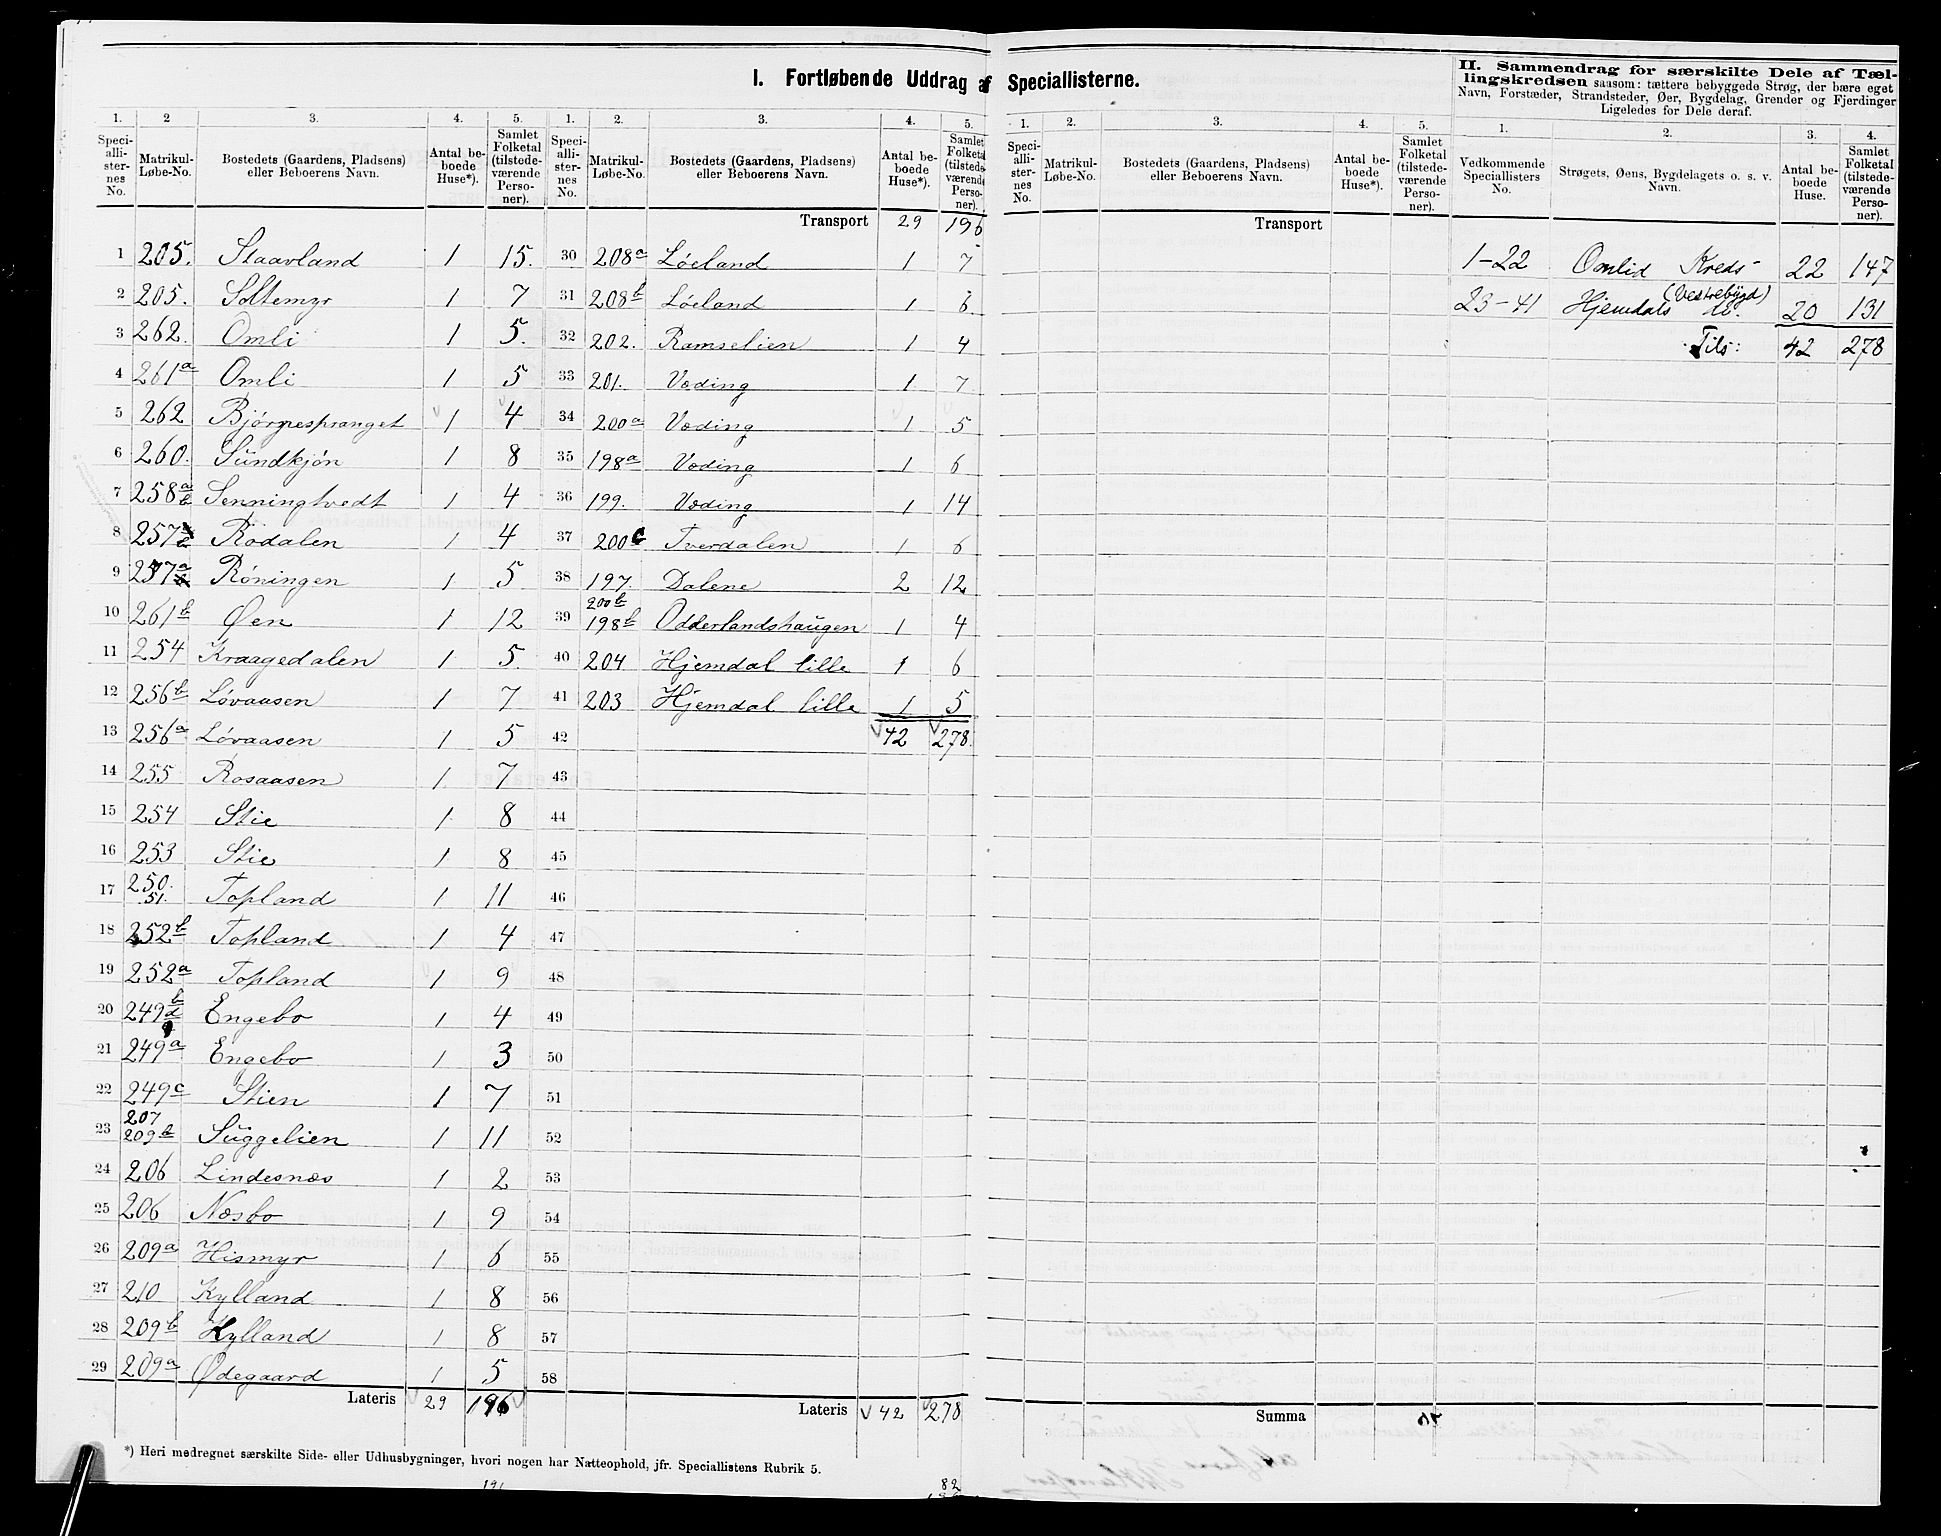 I. Fortløbende Uddrag af Speciallisterne.
II. Sammendrag for særskilte Dele af Tæl-
lingskredsen saasom: tættere bebyggede Strøg, der bære eget
Navn, Forstæder, Strandsteder, Øer, Bygdelag, Grender og Fjerdinger
Ligeledes for Dele deraf.
1. 2 3. 4. 5.
Speci-allister-nes No. Matrikul-Løbe-No. Bostedets (Gaardens, Pladsens) eller Beboerens Navn. Antal be-boede Huse*). Samlet Folketal (tilstede-værende Perso-ner).
1 205. Staavland 1 15.
2 205. Soltemyr 1 7
3 262. Omli 1 5.
4 261a Omli 1 5
5 262 Bjørgnespranget 1 4
6 260. Sundkjøn 1 8
7 258 a b Senningtvedt 1 4
8 257 Rödalen 1 4
9 257a Röningen 1 5
10 261b Øen 1 12
11 254 Kraagedalen 1 5.
12 256b Løvaasen 1 7
13 256a Løvaasen 1 5
14 255 Rosaasen 1 7
15 254 Stie 1 8
16 253 Stie 1 8
17 250. 51. Topland 1 11
18 252b Topland 1 4
19 252a Topland 1 9
20 249 b d Engebo 1 4
21 249a Engebo 1 3
22 249c Stien 1 7
23 207 209b Suggelien 1 11
24 206 Lindesnæs 1 2
25 206 Næsbo 1 9
26 209a Hismyr 1 6
27 210 Kylland 1 8
28 209b Kylland 1 8
29 209a Ødegaard 1 5
Lateris 29 196
1. 2. 3. 4. 5.
Speci-allister-nes No. Matrikul-Løbe-No. Bostedets (Gaardens, Pladsens) eller Beboerens Navn. Antal be-boede Huse*). Samlet Folketal (tilstede-værende Perso-ner).
Transport 29 196
30 208a Löeland 1 7
31 208b Löeland 1 6
32 202. Ramselien 1 4
33 201. Væding 1 7
34 200a Væding 1 5
35 198a Væding 1 6
36 199. Væding 1 14
37 200c Tverdalen 1 6
38 197. Dalene 2 12
39 200b 198b Odderlandshaugen 1 4
40 204 Hjemdal lille 1 6
41 203 Hjemdal lille 1 5
42 42 278.
43
44
45
46
47
48
49
50
51
52
53
54
55
56
57
58
Lateris 42 278
*) Heri medregnet særskilte Side- eller Udhusbygninger, hvori nogen har Natteophold, jfr. Speciallistens Rubrik 5.
1. 2. 3. 4. 5.
Speci-allister-nes No. Matrikul-Løbe-No. Bostedets (Gaardens, Pladsens) eller Beboerens Navn. Antal be-boede Huse*). Samlet Folketal (tilstede-værende Perso-ner).
Transport
Summa
1. 2. 3. 4.
Vedkommende Speciallisters No. Strøgets, Øens, Bygdelagets o. s. v. Navn. Antal be-boede Huse. Samlet Folketal (tilstede-værende Perso-ner).
1-22 Omlid Kreds 22 147
(Vestrebygd)
23-41 Hjemdals do. 20 131
Tils: 42 278
82